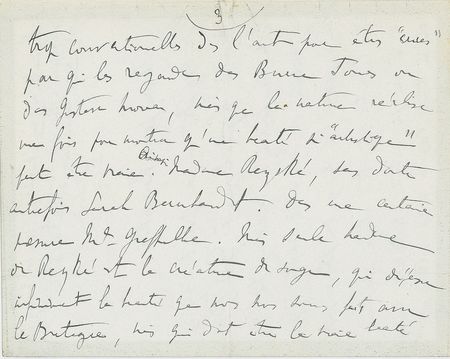 3
trop conventionnelles de l'art pour être "crues"
par qui les regarde des Burne Jones ou
des Gustave Moreau, mais que la nature réalise
une fois pour montrer qu'une beauté si "artistique"
peut être vraie. Madame Reyské, sans doute
autrefois Sarah Bernhardt. Dans une certaine
mesure Mme Greffulhe. Mais seule Madame
de Reyské est la créature de songe, qui
infiniment la beauté que nous nous
la Bretagne, mais qui doit être la vraie beauté